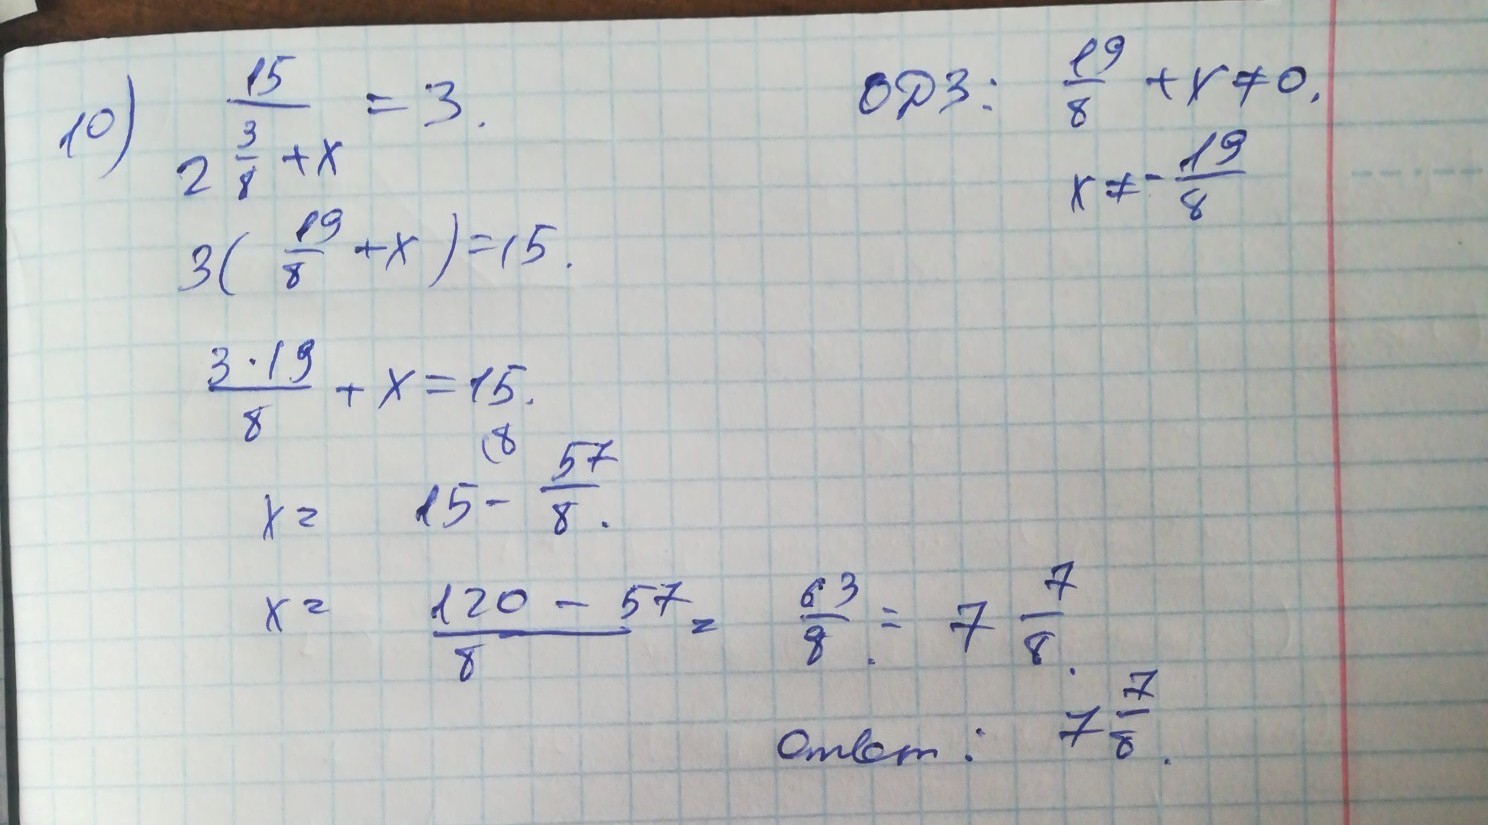 10) 15 / (2 3/8 + x) = 3.
ОДЗ: 19/8 + x ≠ 0.
x ≠ - 19/8
3( 19/8 + x ) = 15.
3·19/8 + x = 15.
x = 15 (8 - 57/8.
x = (120 - 57)/8 = 63/8. = 7 7/8.
Ответ: 7 7/8.